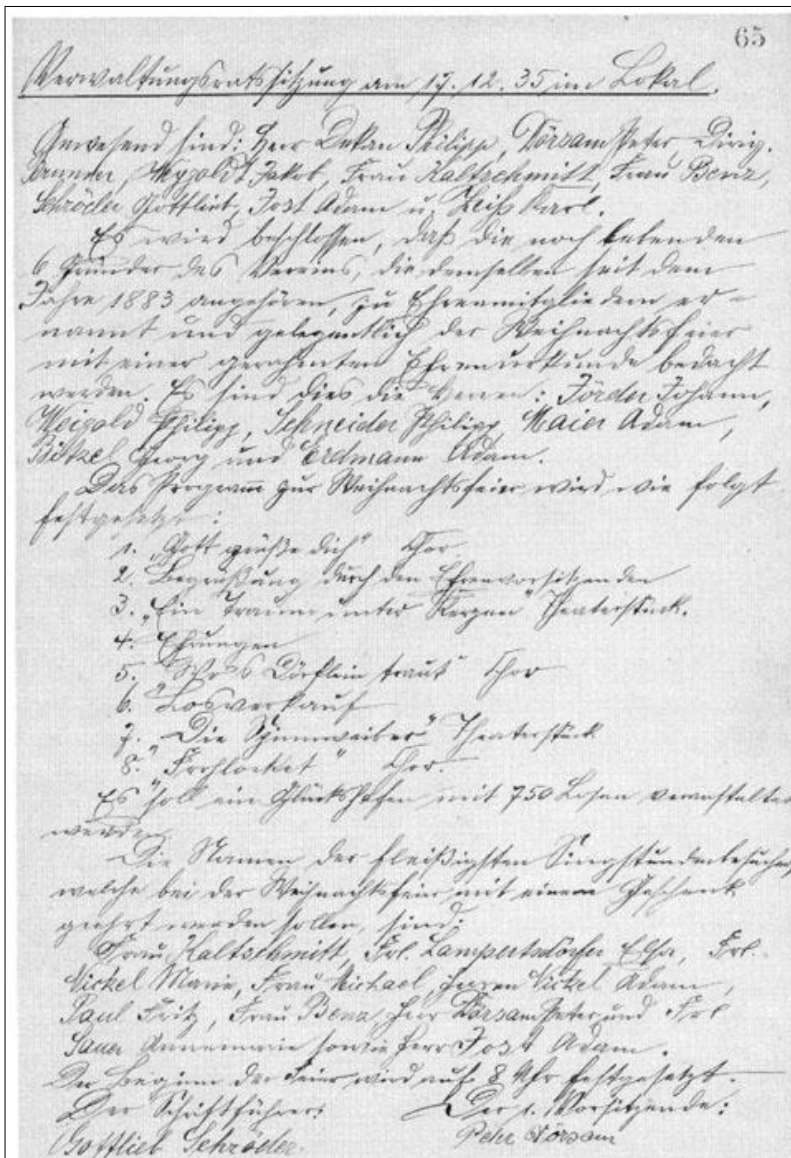 65
Verwaltungsratssitzung am 17.12.35 im Lokal.
Anwesend sind: Herr Dekan Philipp, Dörsam Peter, Dirig.
Brunner, Jakob, Frau Kaltschmitt, Frau Benz,
Schröder Gottlieb, Jost Adam u. Zeiß Karl.
Es wird beschlossen, daß die noch lebenden
6 Gründer des Vereins, die demselben seit dem
Jahre 1883 angehören, zu Ehrenmitgliedern er-
nannt und gelegentlich der Weihnachtsfeier
mit einer gerahmten Ehrenurkunde bedacht
werden. Es sind dies die Herren: Förder Johann,
Weigold Philipp, Schneider Philipp, Maier Adam,
Bitzel Georg und Erdmann Adam.
Das Programm zur Weihnachtsfeier wird wie folgt
festgesetzt:
1. "Gott grüße dich" Chor.
2. Begrüßung durch den Ehrenvorsitzenden
3. "Ein Traum unter Kerzen" Theaterstück.
4. Ehrungen
5. "Wo's Dörflein traut" Chor
6. Losverkauf
7. "Die Spinnweiber" Theaterstück
8. "Frohlocket" Chor.
Es soll ein Glückshafen mit 750 Losen veranstaltet
werden.
Die Namen der fleißigsten Singstundenbesucher,
welche bei der Weihnachtsfeier mit einem Geschenk
geehrt werden sollen, sind:
Frau Kaltschmitt, Frl. Lampertsdörfer Elsa, Frl.
Nickel Marie, Frau Michael, Herren Nickel Adam,
Paul Fritz, Frau Benz, Herr Dörsam Peter und Frl.
Sauer Annemarie sowie Herr Jost Adam.
Der Beginn der Feier wird auf 8 Uhr festgesetzt.
Der Schriftführer: Der 1. Vorsitzende:
Gottlieb Schröder. Peter Dörsam